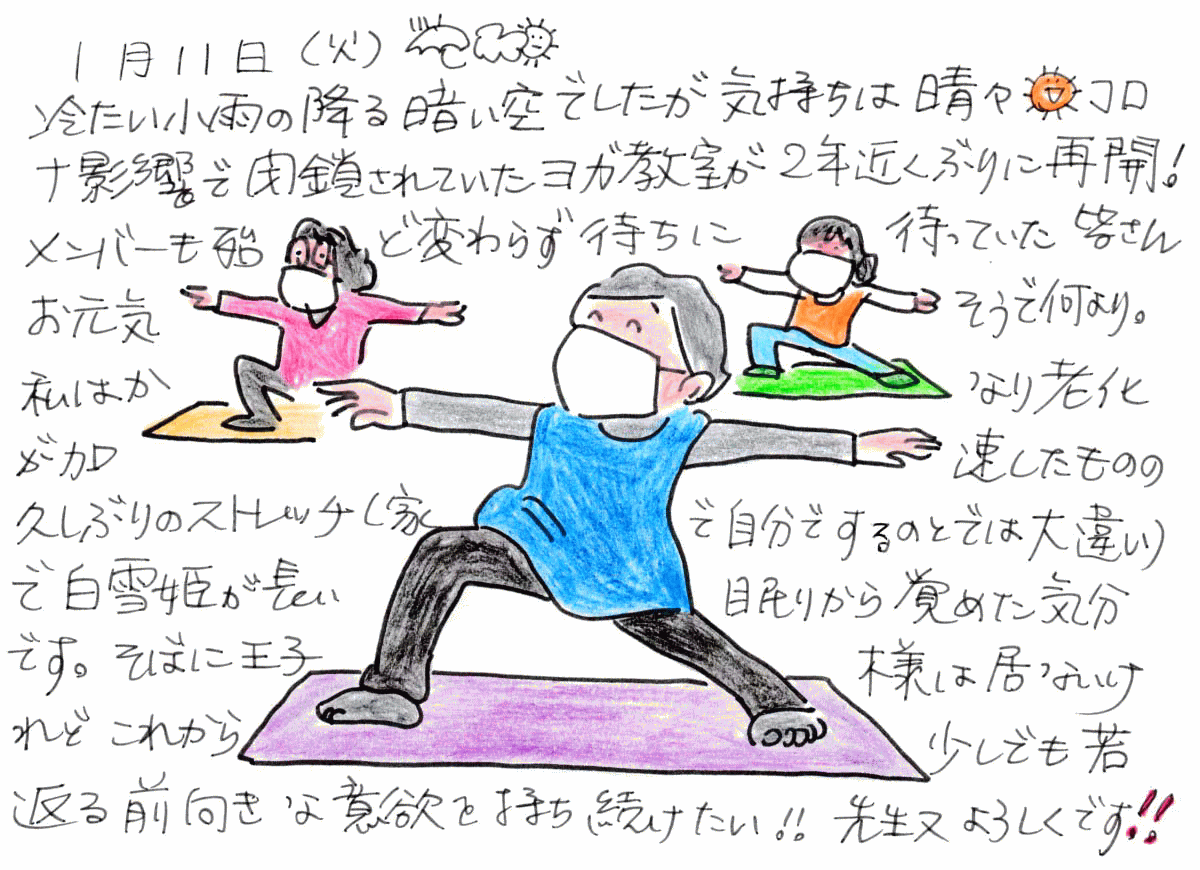 1月11日(火)
冷たい小雨の降る暗い空でしたが気持ちは晴々コロ
ナ影響で閉鎖されていたヨガ教室が2年近くぶりに再開!
メンバーも殆ど変わらず待ちに待っていた皆さん
お元気そうで何より。
私はかなり老化
が加速したものの
久しぶりのストレッチ(家で自分でするのとでは大違い)
で白雪姫が長い眠りから覚めた気分
です。そばに王子様は居ないけ
れどこれから少しでも若
返る前向きな意欲を持ち続けたい!!先生又よろしくです!!